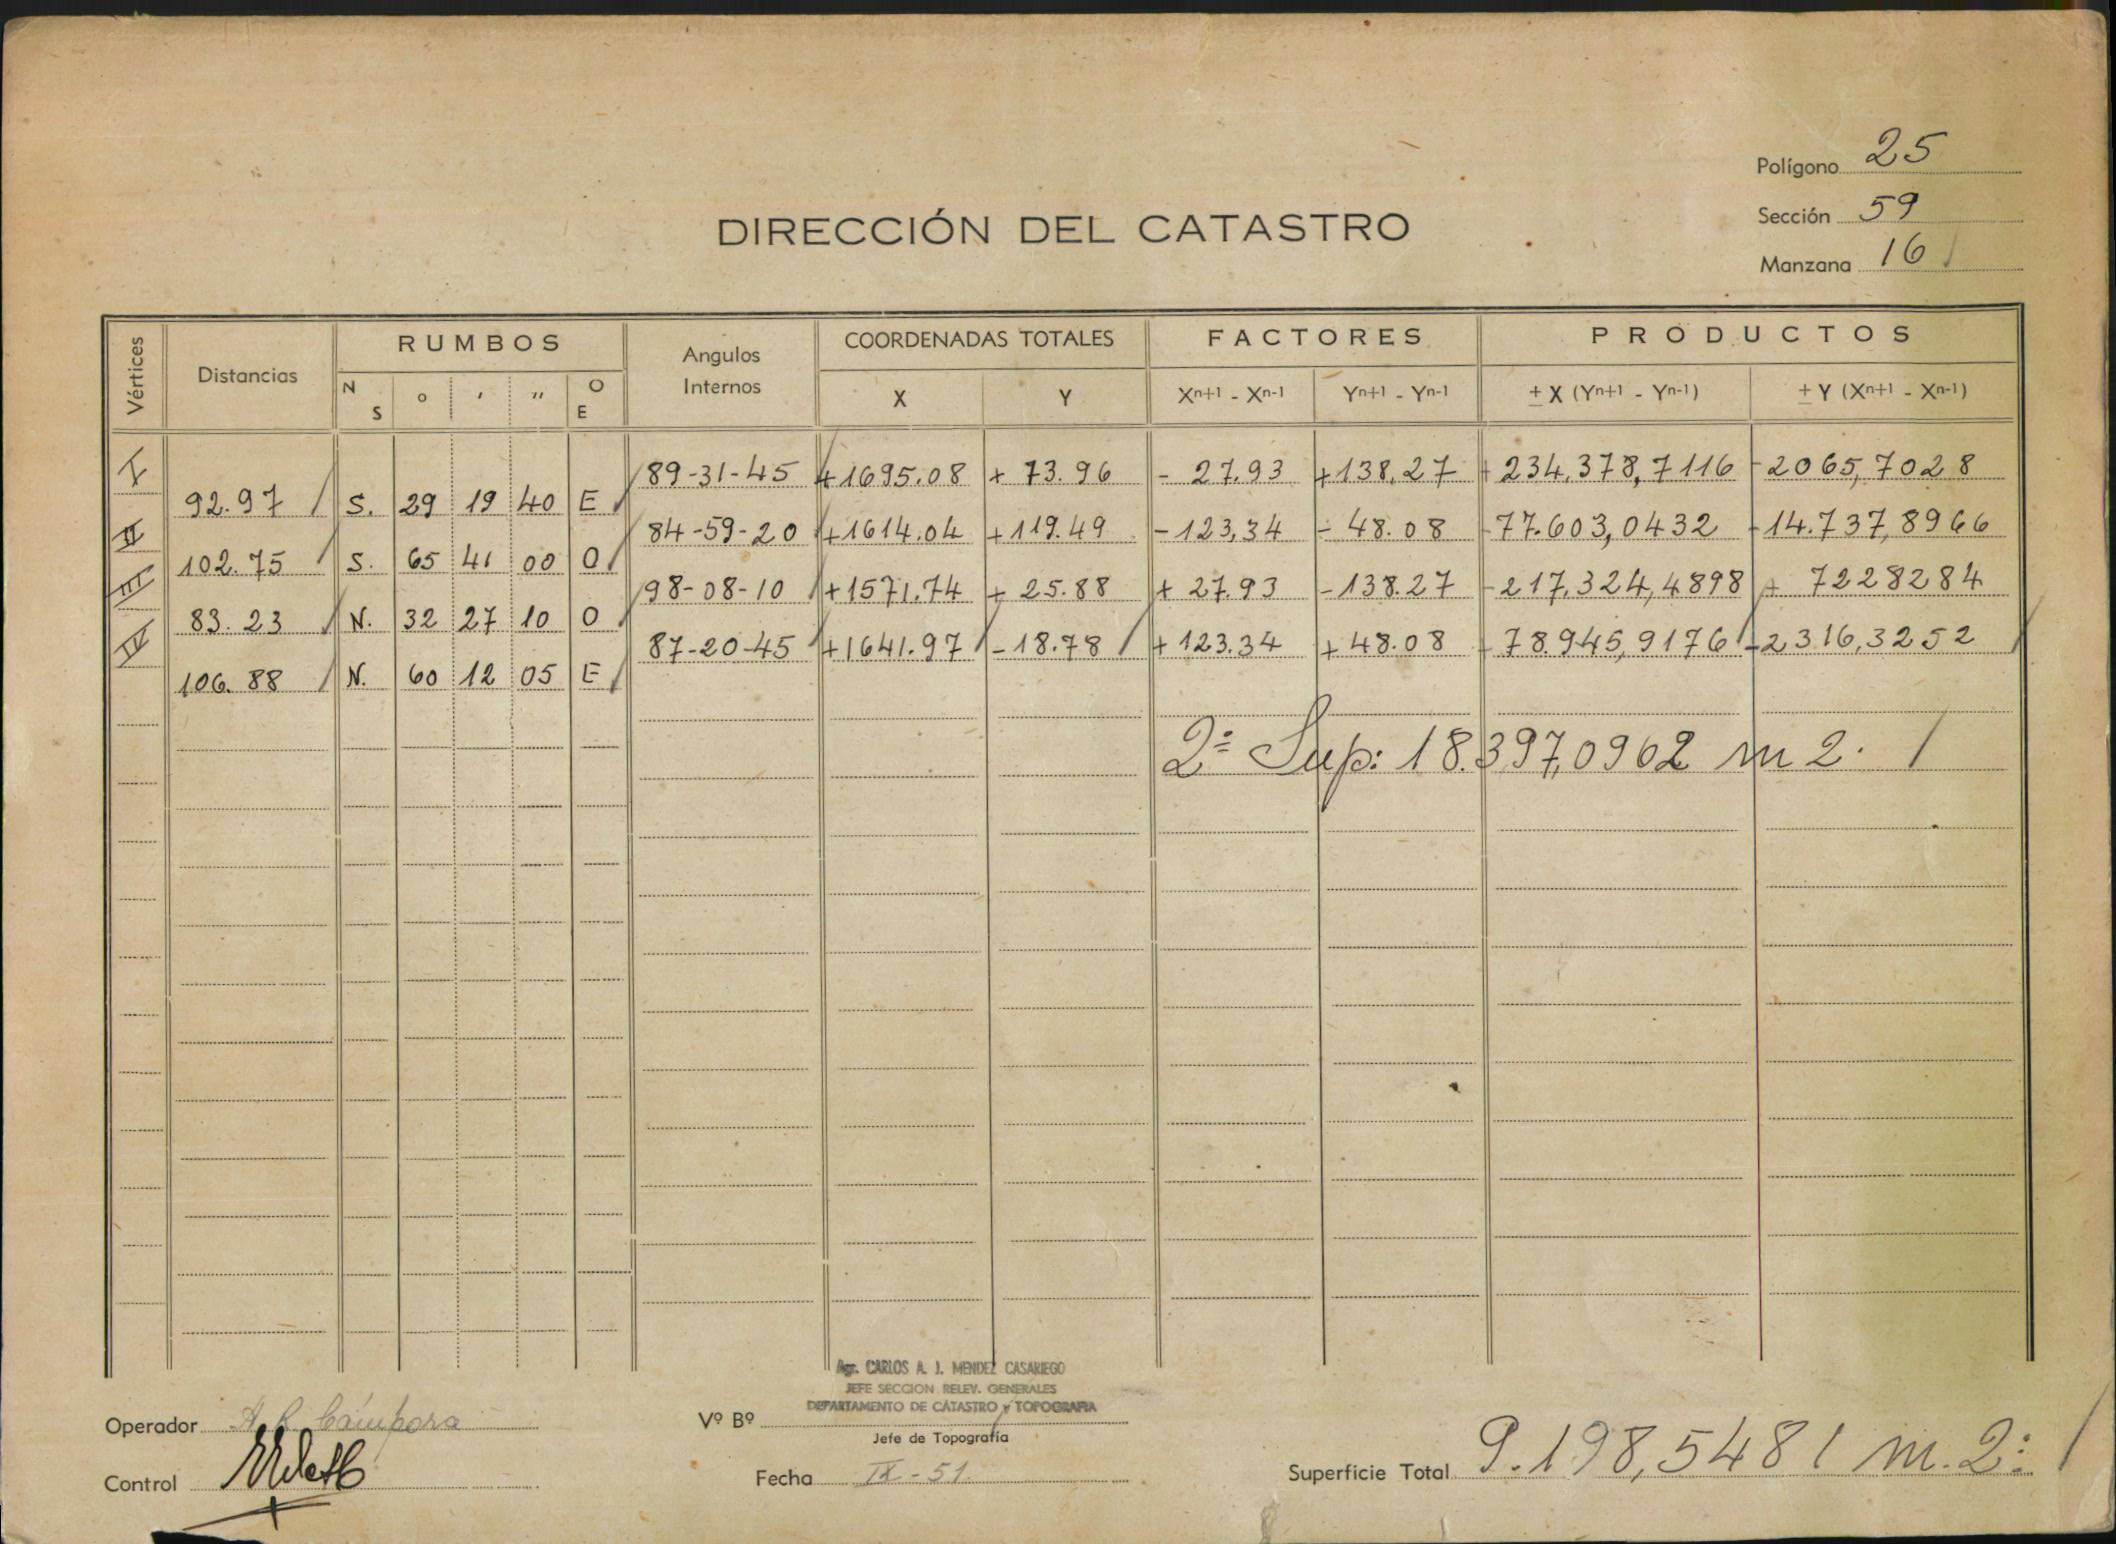 Polígono 25
Sección 59
Manzana 16
DIRECCIÓN DEL CATASTRO
Vértices Distancias RUMBOS Angulos Internos COORDENADAS TOTALES FACTORES PRODUCTOS
N S ° ' " O E X Y Xn+1 - Xn-1 Yn+1 - Yn-1 ± X (Yn+1 - Yn-1) ± Y (Xn+1 - Xn-1)
I 89-31-45 +1695.08 + 73.96 - 27.93 +138.27 +234.378,7116 -2065,7028
92.97 S. 29 19 40 E
II 84-59-20 +1614.04 +119.49 -123,34 - 48.08 -77.603,0432 -14.737,8966
102.75 S. 65 41 00 O
III 98-08-10 +1571.74 + 25.88 + 27.93 -138.27 -217.324,4898 + 7228284
83.23 N. 32 27 10 O
IV 87-20-45 +1641.97 -18.78 +123.34 +48.08 + 78.945,9176 -2316,3252
106.88 N. 60 12 05 E
2= Sup: 18.397,0962 m2.
Agr. CARLOS A. J. MENDEZ CASARIEGO
JEFE SECCION RELEV. GENERALES
DEPARTAMENTO DE CATASTRO y TOPOGRAFIA
Operador Cámpora
Vº Bº
Jefe de Topografía
Control
Fecha IX-51.
Superficie Total 9.198,5481 m.2: